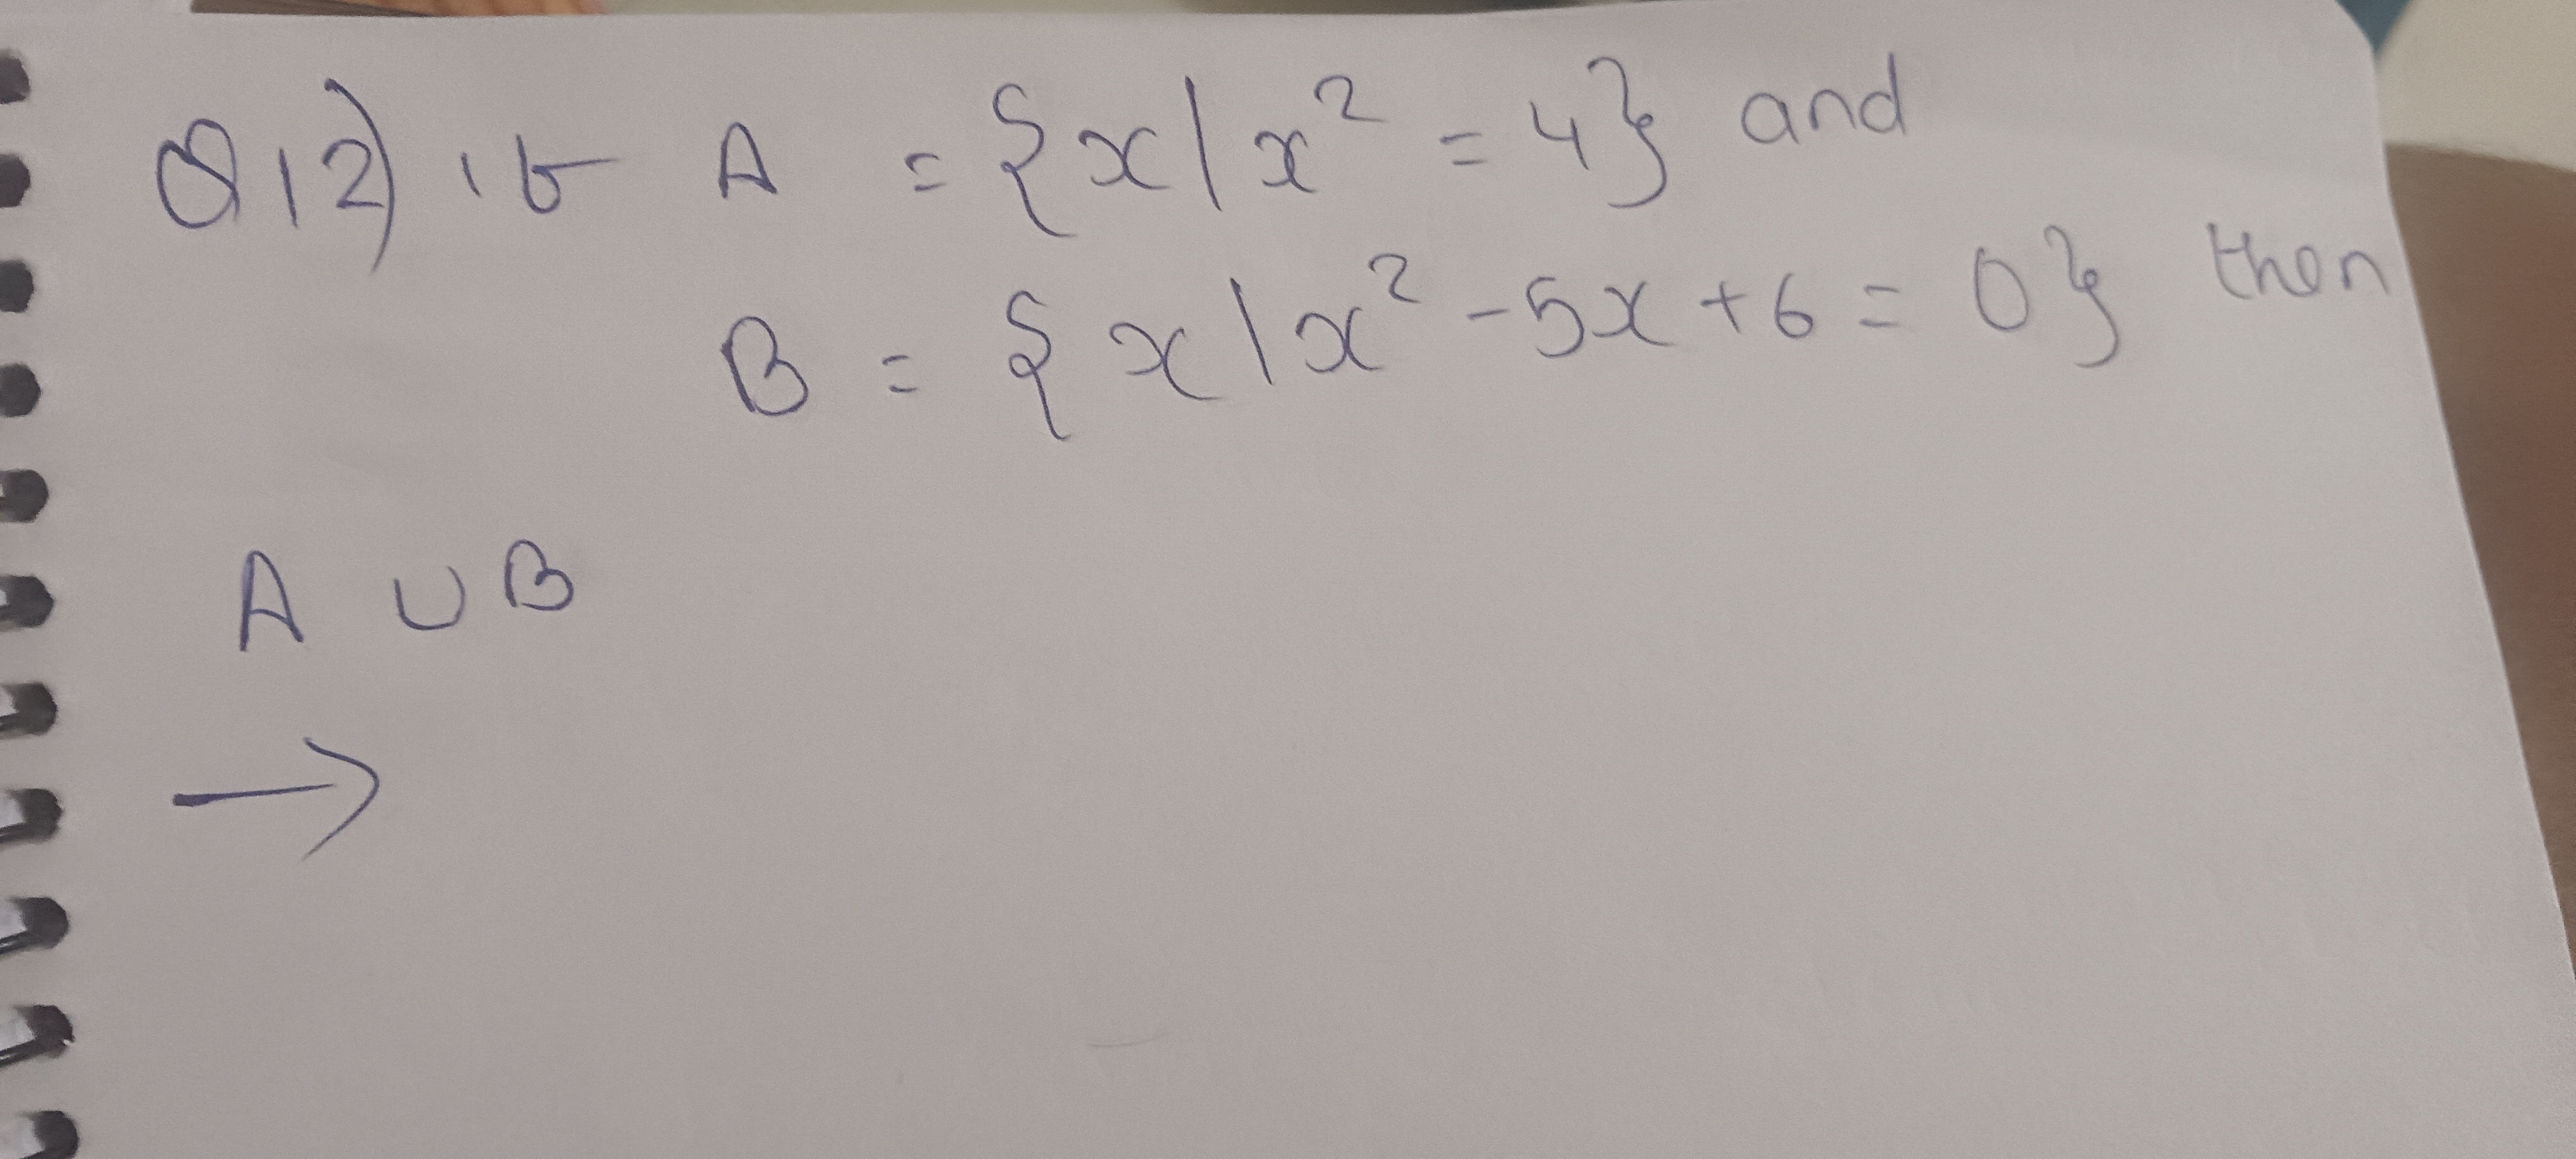 Q12) if A = {x/x² = 4} and
B = {x|x² - 5x + 6 = 0} then
A ∪ B
→